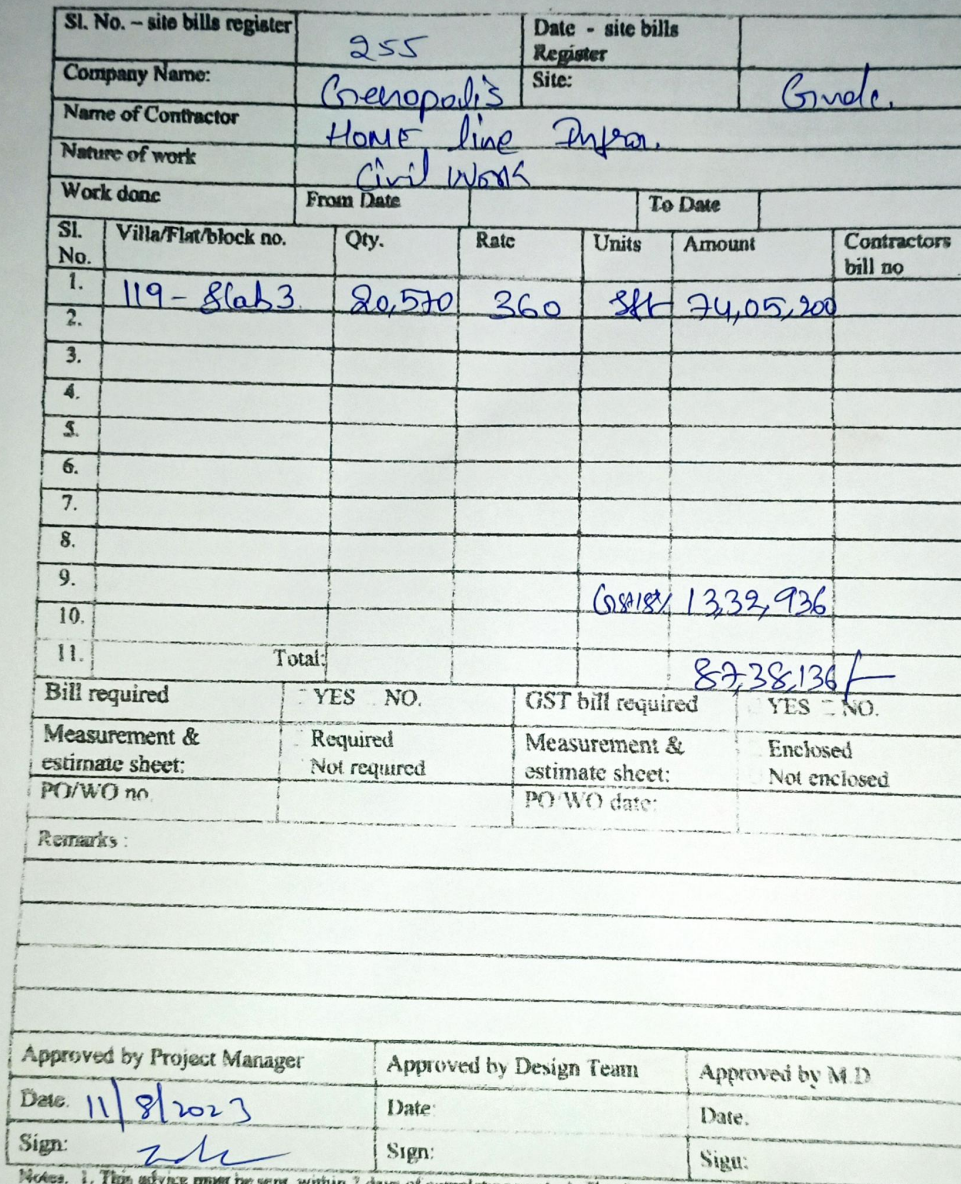 Sl. No. – site bills register 255 Date - site bills Register
Company Name: Genopolis Site:
Name of Contractor HOME line Infra.
Nature of work Civil Work
Work done From Date To Date
Sl. No. Villa/Flat/block no. Qty. Rate Units Amount Contractors bill no
1. 119 - Slab 3 20,570 360 Sft 74,05,200
2.
3.
4.
5.
6.
7.
8.
9. GST 18% 13,32,936
10.
11. Total: 87,38,136/-
Bill required YES NO. GST bill required YES NO.
Measurement & estimate sheet: Required Not required Measurement & estimate sheet: Enclosed Not enclosed
PO/WO no PO/WO date:
Remarks :
Approved by Project Manager Approved by Design Team Approved by M.D
Date. 11/8/2023 Date: Date.
Sign: Sign: Sign:
Notes. 1. This advice must be sent within 7 days of